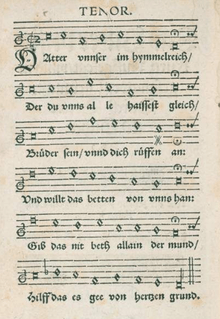 TENOR.
VAtter vnnser im hymmelreich/
Der du vnns al le haissest gleich/
Brüder sein/ vnnd dich rüffen an:
Vnd willt das betten von vnns han:
Gib das nit beth allain der mund/
Hilff das es gee von hertzen grund.